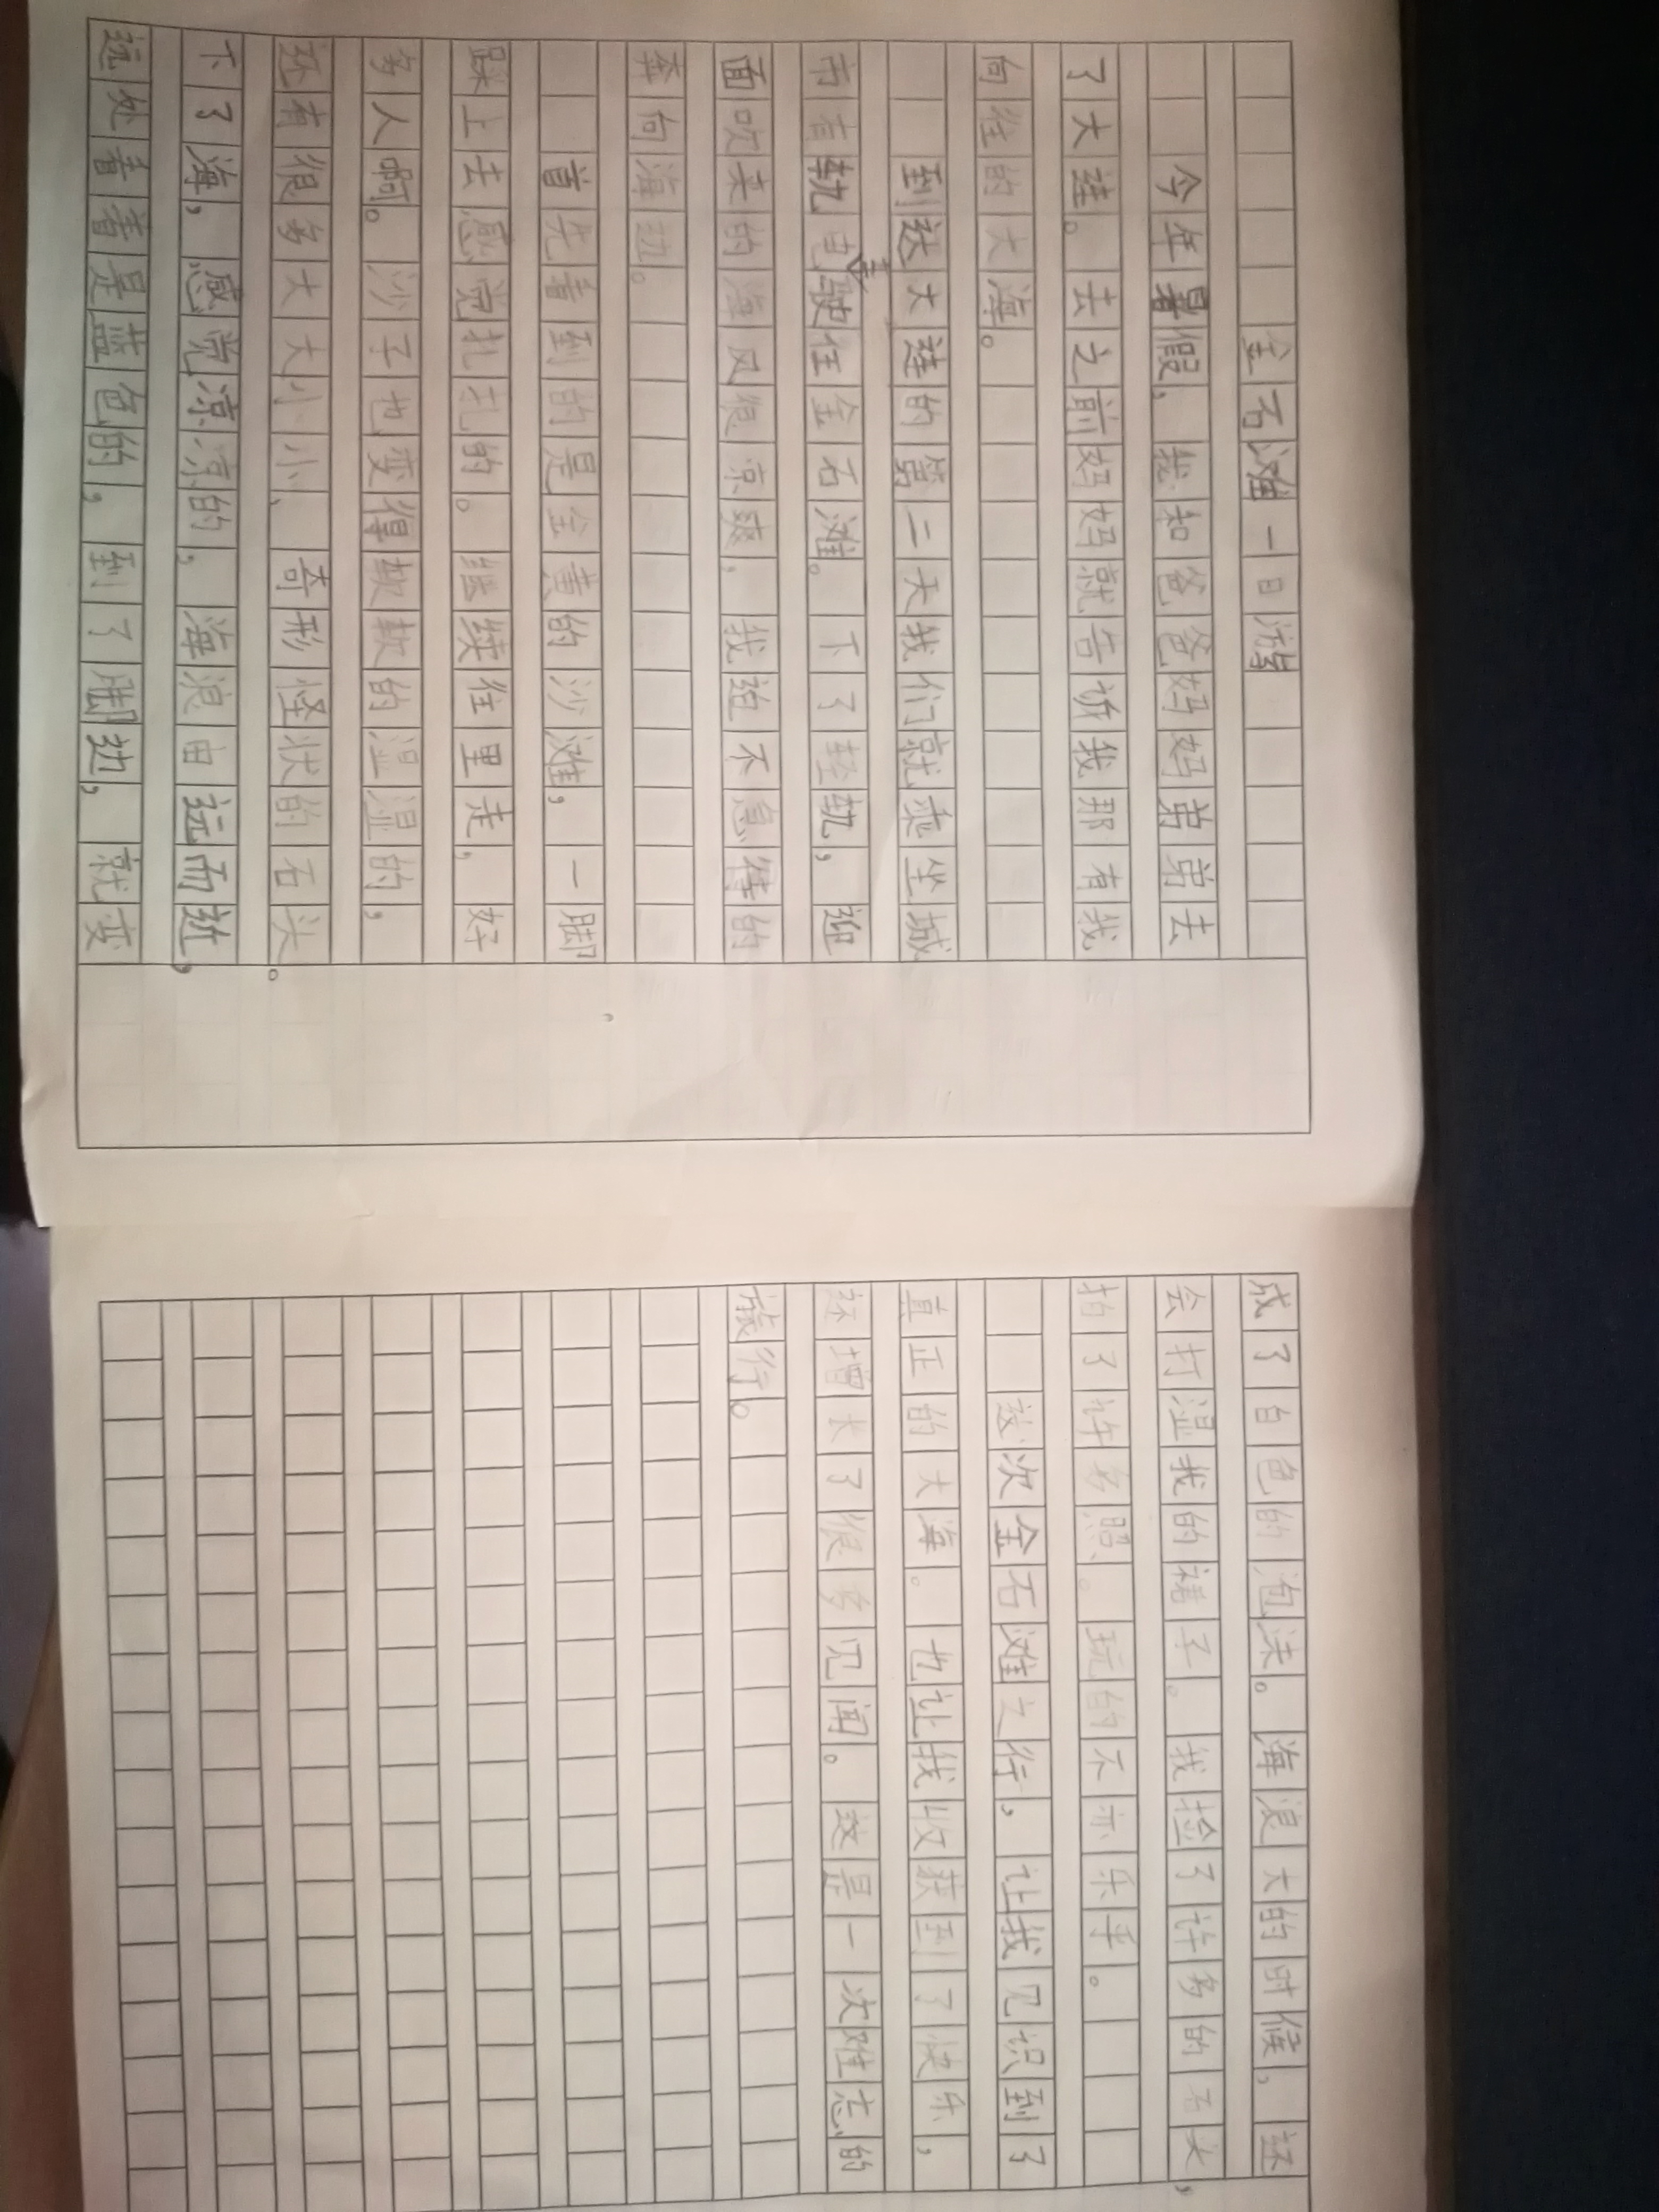 金石滩一日游
今年暑假，我和爸爸妈妈弟弟去
了大连。去之前妈妈就告诉我那有我
向往的大海。
到达大连的第二天我们就乘坐城
市有轨电车驶往金石滩。下了轻轨，迎
面吹来的海风很凉爽，我迫不急待的
奔向海边。
首先看到的是金黄的沙滩，一脚
踩上去感觉扎扎的。继续往里走，好
多人啊。沙子也变得软软的湿湿的，
还有很多大大小小、奇形怪状的石头。
下了海，感觉凉凉的，海浪由远而近，
远处看着是蓝色的，到了脚边，就变
成了白色的泡沫。海浪大的时候，还
会打湿我的裙子。我捡了许多的石头，
拍了许多照。玩的不亦乐乎。
这次金石滩之行，让我见识到了
真正的大海。也让我收获到了快乐，
还增长了很多见闻。这是一次难忘的
旅行。